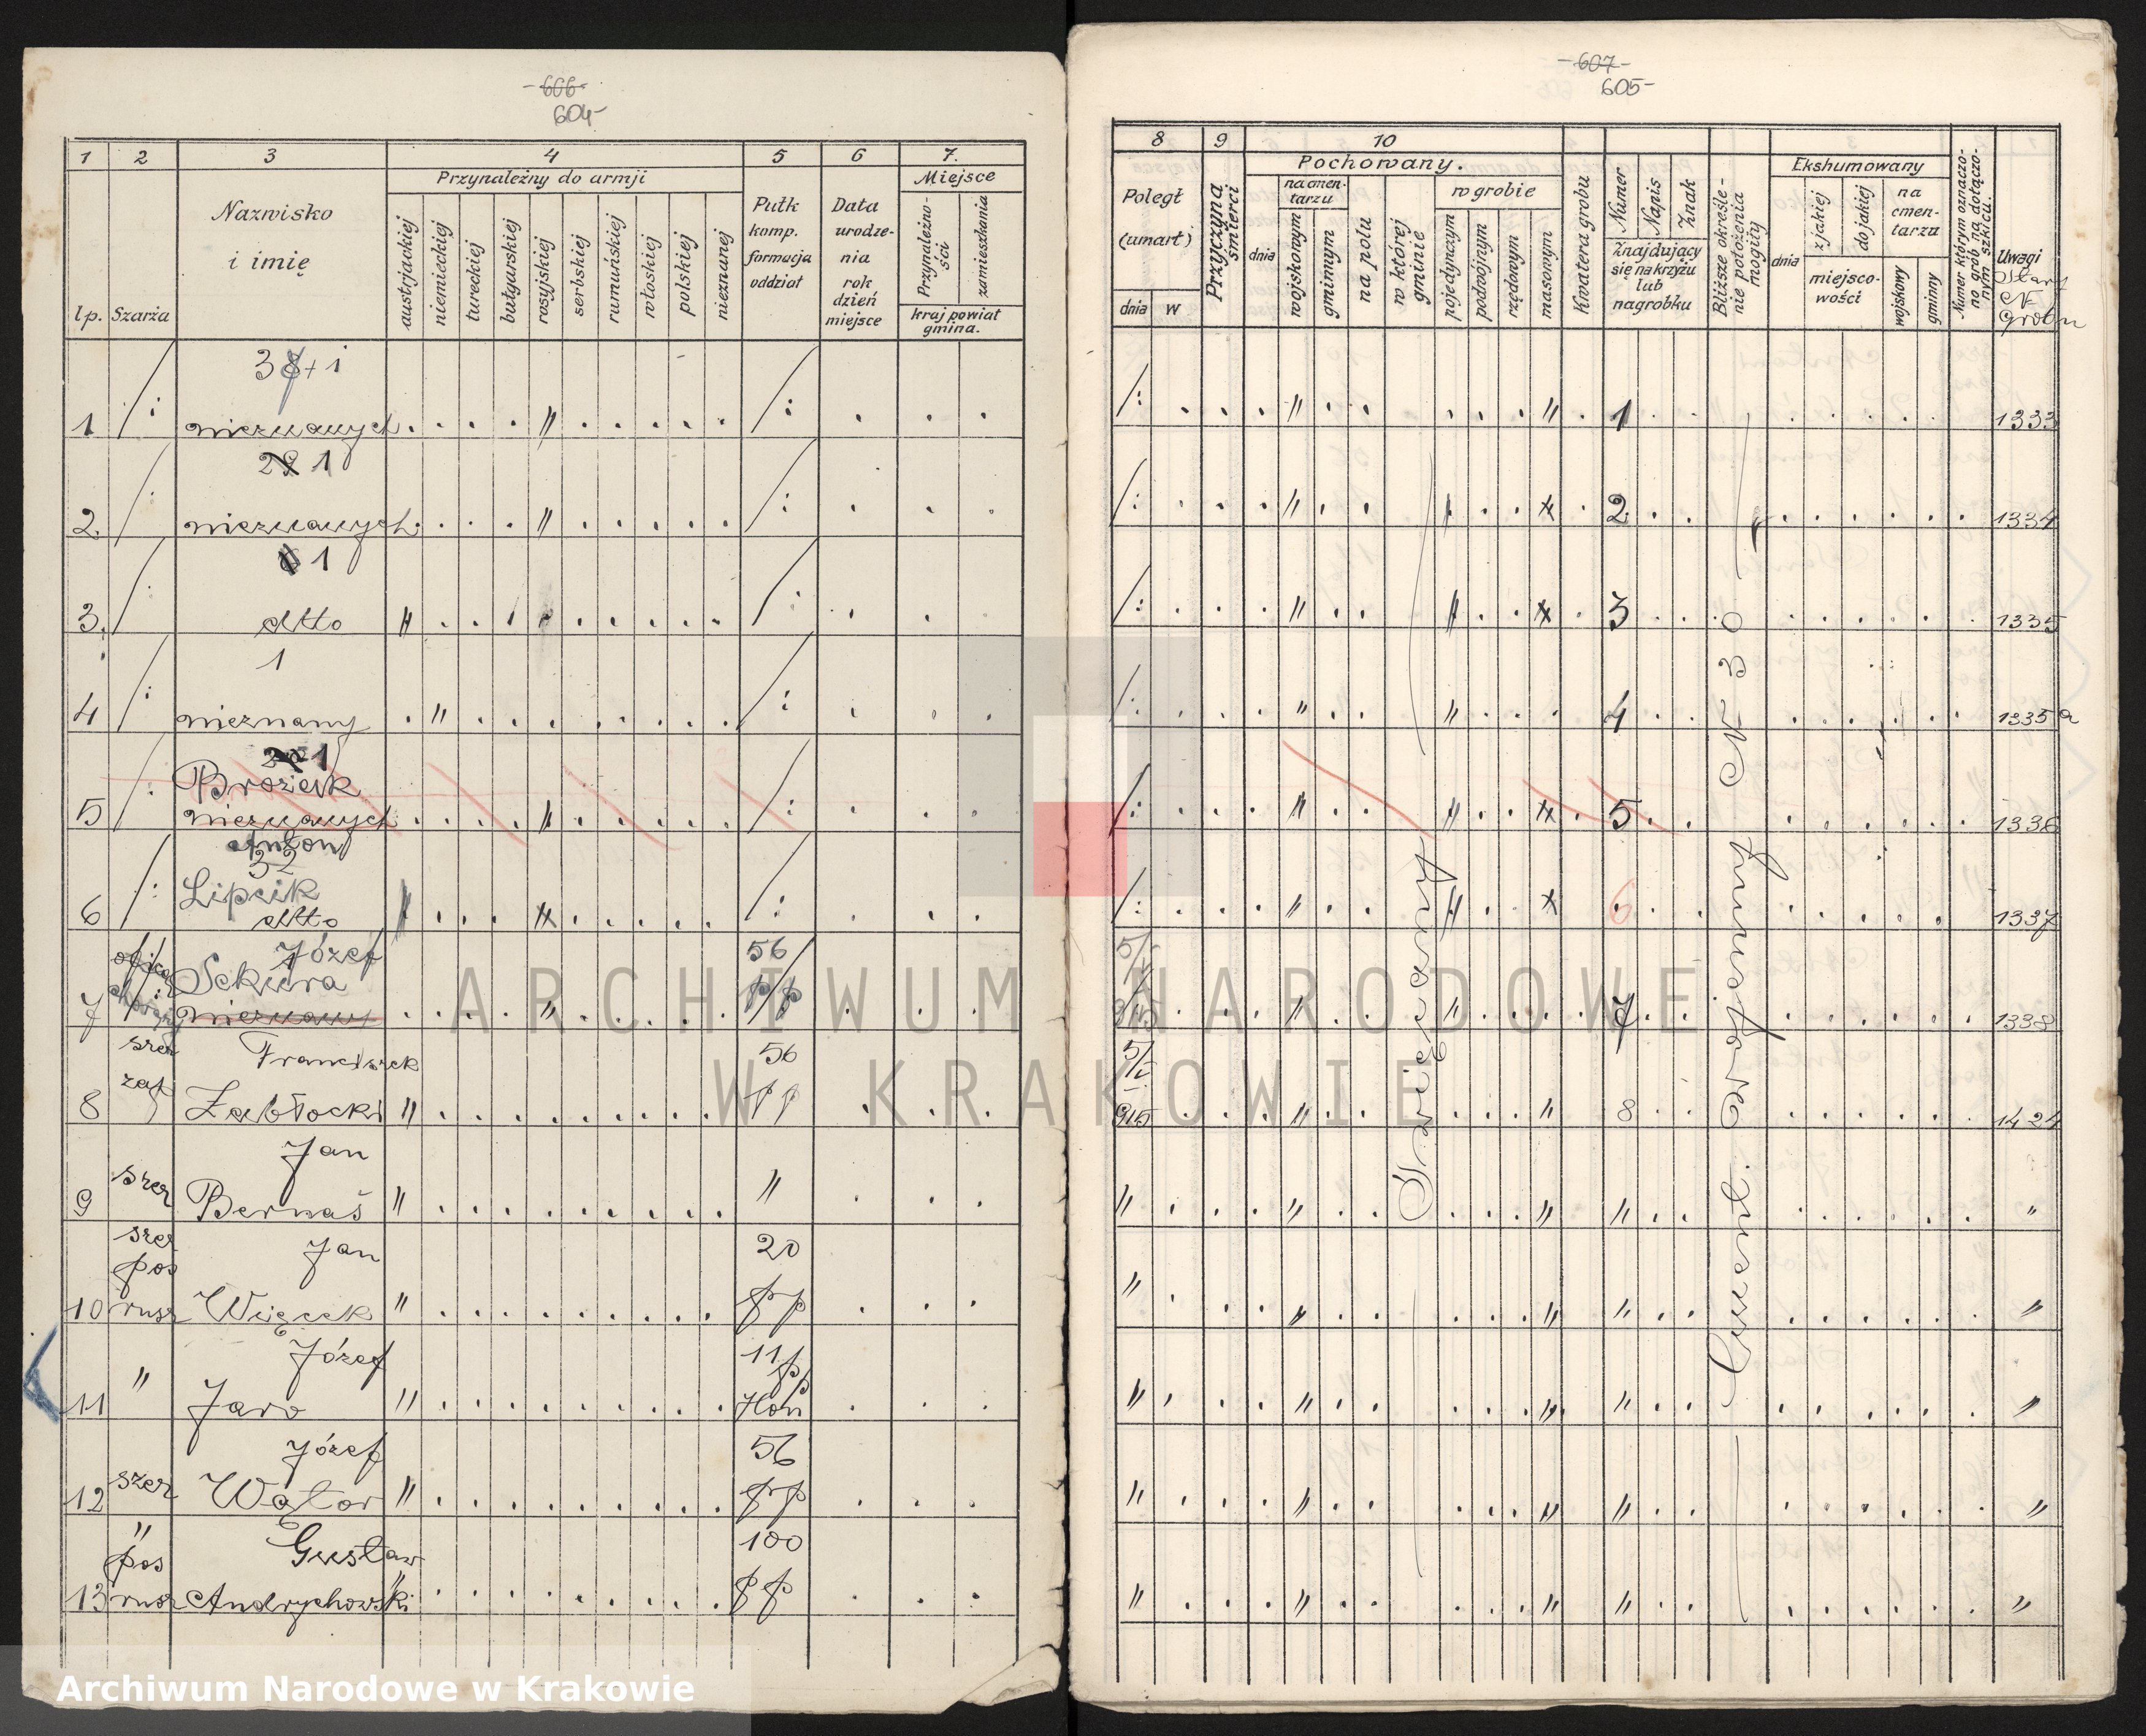 -606-
604-
1 2 3 4 5 6 7.
Przynależny do armji
Miejsce
lp.
Szarża
Nazwisko
i imię
austrjackiej
niemieckiej
tureckiej
bułgarskiej
rosyjskiej
serbskiej
rumuńskiej
włoskiej
polskiej
nieznanej
Pułk
komp.
formacja
oddział
Data
urodze-
nia
rok
dzień
miejsce
Przynależno-
ści
zamieszkania
kraj powiat
gmina.
1 nieznanych
2. nieznanych
1
3. dtto
1
4 nieznany
1
5 Brożek
nieznanych
Anton
32
6 Lipcik
dtto
Józef 56
Sekura pp
7 nieznany
szer Franciszek 56
zap
8 Zabłocki " pp
Jan
9 szer Bernaś " "
szer Jan 20
pos
10 rusz Więcek " pp
Józef 11
pp
11 " Jaro " Hon
Józef 56
12 szer Wątor " pp
" Gustaw 100
pos
13 rusz Andrychowski " pp
-607-
605-
8 9 10
Poległ
(umarł)
dnia w
Przyczyna
śmierci
Pochowany.
dnia
na cmen-
tarzu
wojskowym
gminnym
na polu
w której
gminie
w grobie
pojedynczym
podwójnym
rzędowym
masowym
Kwatera grobu
Numer
Napis
Znak
Znajdujący
się na krzyżu
lub
nagrobku
Bliższe określe-
nie położenia
mogiły
Ekshumowany
dnia
z jakiej
do jakiej
miejsco-
wości
na
cmen-
tarzu
wojskowy
gminny
Numer którym oznaczo-
no grób na dołączo-
nym szkicu.
Uwagi
Stary
N
Grobu
1 1333
2 1334
3 1335
4 1335a
5 1336
6 1337
7 1338
5/I
915 8 1424
" " "
" " "
" " "
" " "
" " "
Cmentarz wojskowy N 30
ARCHIWUM NARODOWE
W KRAKOWIE
Archiwum Narodowe w Krakowie